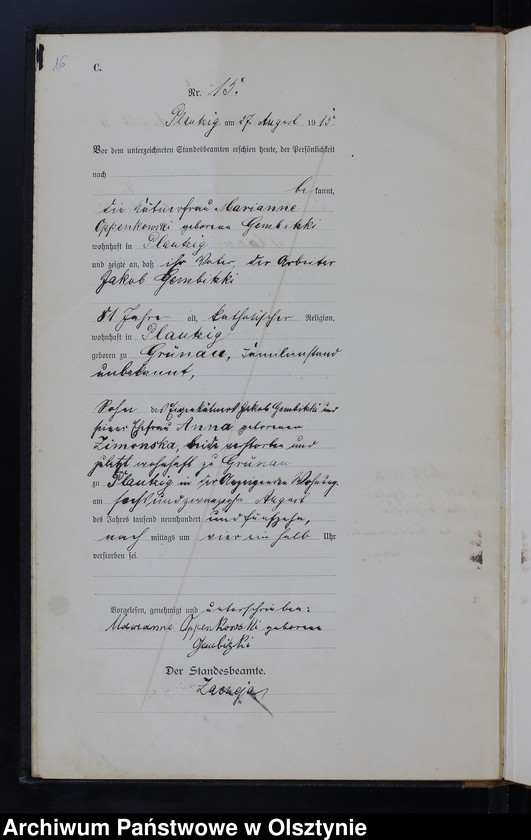 16
C.
Nr. 15.
Plautzig am 27 August 1915
Vor dem unterzeichneten Standesbeamten erschien heute, der Persönlichkeit
nach
be kannt,
die Kätnerfrau Marianne
Oppenkowski geborene Gembitzki
wohnhaft in Plautzig
und zeigte an, daß ihr Vater, der Arbeiter
Jakob Gembitzki
81 Jahre alt, katholischer Religion,
wohnhaft in Plautzig
geboren zu Grünau, Familienstand
unbekannt,
Sohn des Eigenkätners Jakob Gembitzki und
seiner Ehefrau Anna geborenen
Zimonska, beide verstorben und
zuletzt wohnhaft zu Grünau
zu Plautzig in der Anzeigenden Wohnung
am sechsundzwanzigsten August
des Jahres tausend neunhundert und fünfzehn,
nach mittags um vier ein halb Uhr
verstorben sei.
Vorgelesen, genehmigt und unterschrieben:
Marianne Oppenkowski geborene
Gembitzki
Der Standesbeamte.
Archiwum Państwowe w Olsztynie